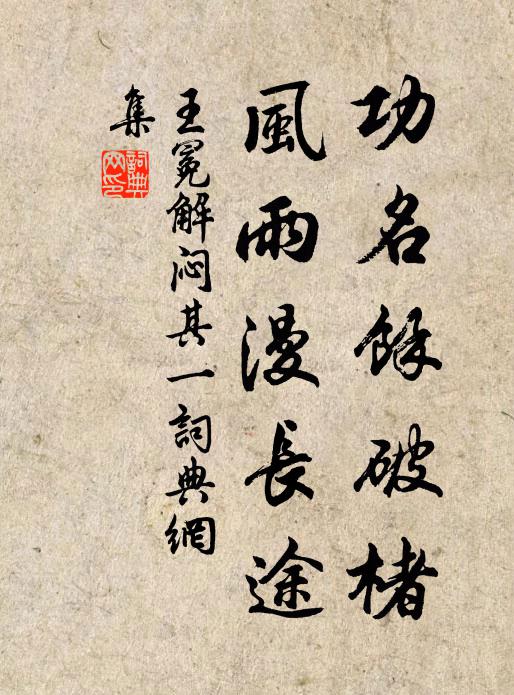 功名餘破楮
風雨漫長途
王冕解闷其一詞典網
集
詞典网印